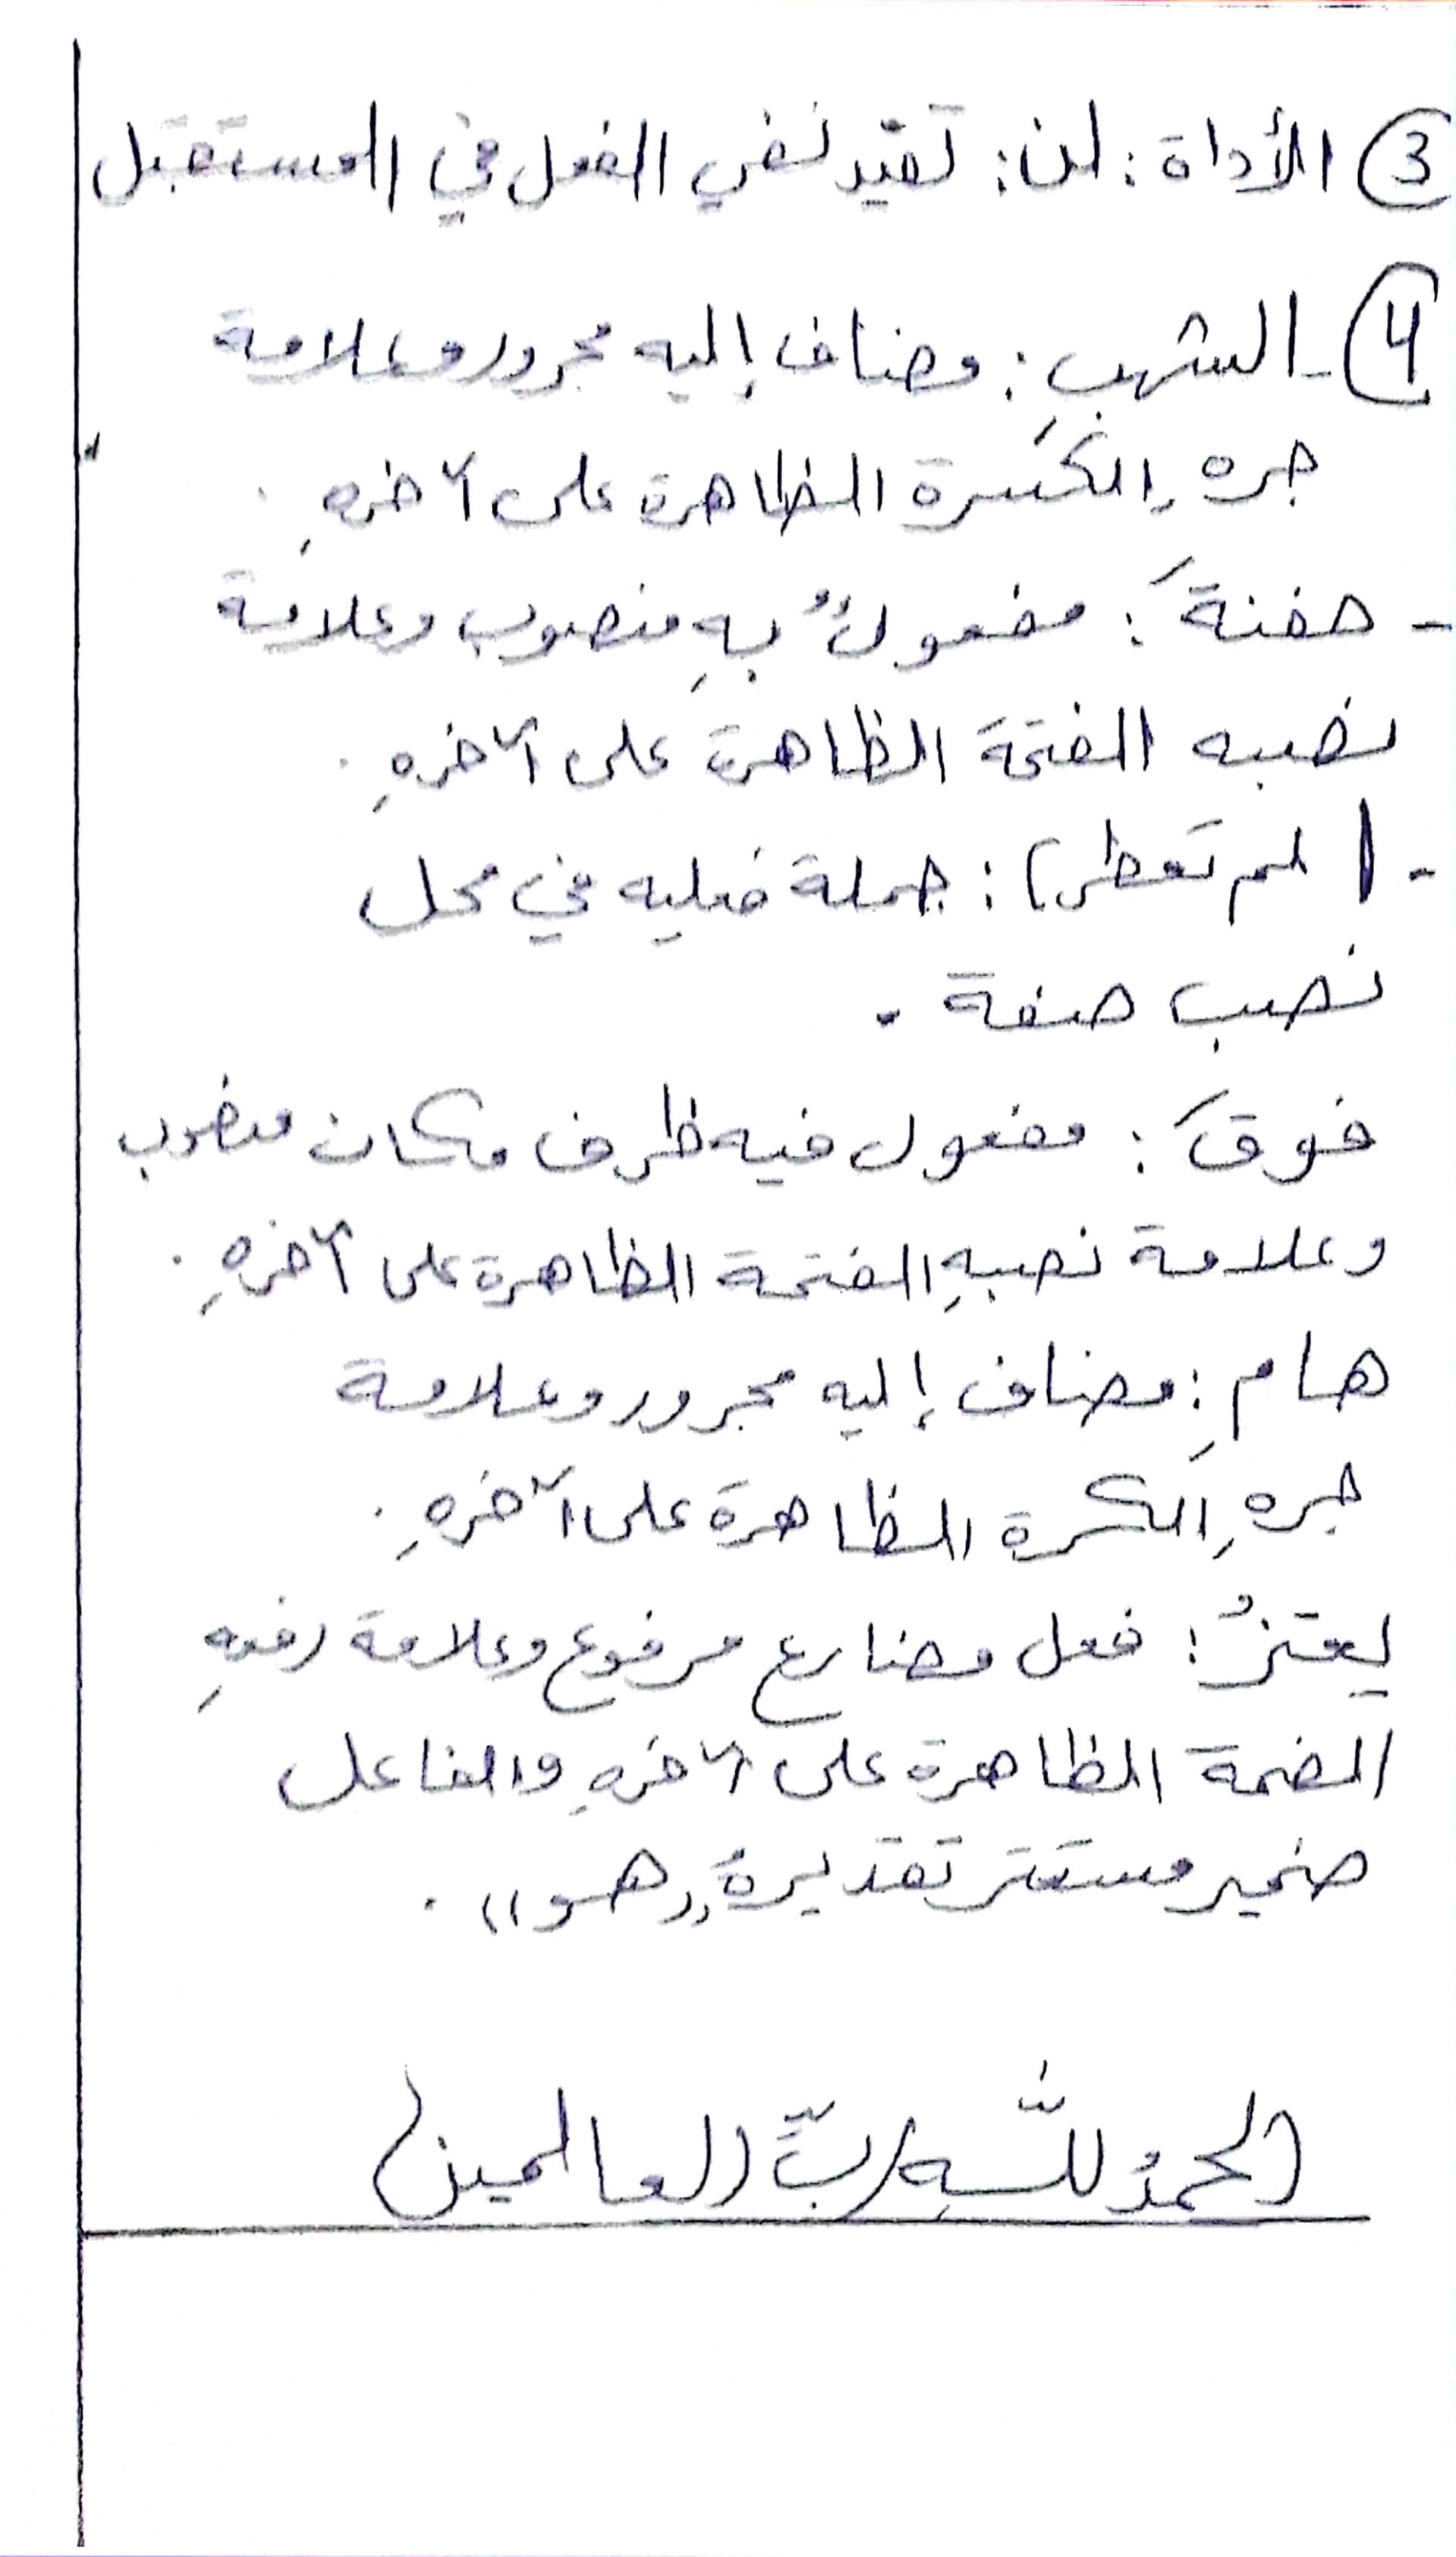 ③ الأداة: لن: تفيد نفي الفعل في المستقبل
④ - الشهبِ: مضاف إليه مجرور وعلامة
جرهِ الكسرة الظاهرة على آخرهِ.
- حفنةَ: مفعولٌ بهِ منصوب وعلامة
نصبه الفتحة الظاهرة على آخرهِ.
- (لم تمطر): جملة فعليه في محل
نصب صفة.
فوقَ: مفعول فيه ظرف مكان منصوب
وعلامة نصبهِ الفتحة الظاهرة على آخرهِ.
هامِ: مضاف إليه مجرور وعلامة
جرهِ الكسرة الظاهرة على آخرهِ.
يعتزُ: فعل مضارع مرفوع وعلامة رفعهِ
الضمة الظاهرة على آخرهِ والفاعل
ضمير مستتر تقديرهُ "هو".
(الحمدُ للَّهِ ربِّ العالمين)